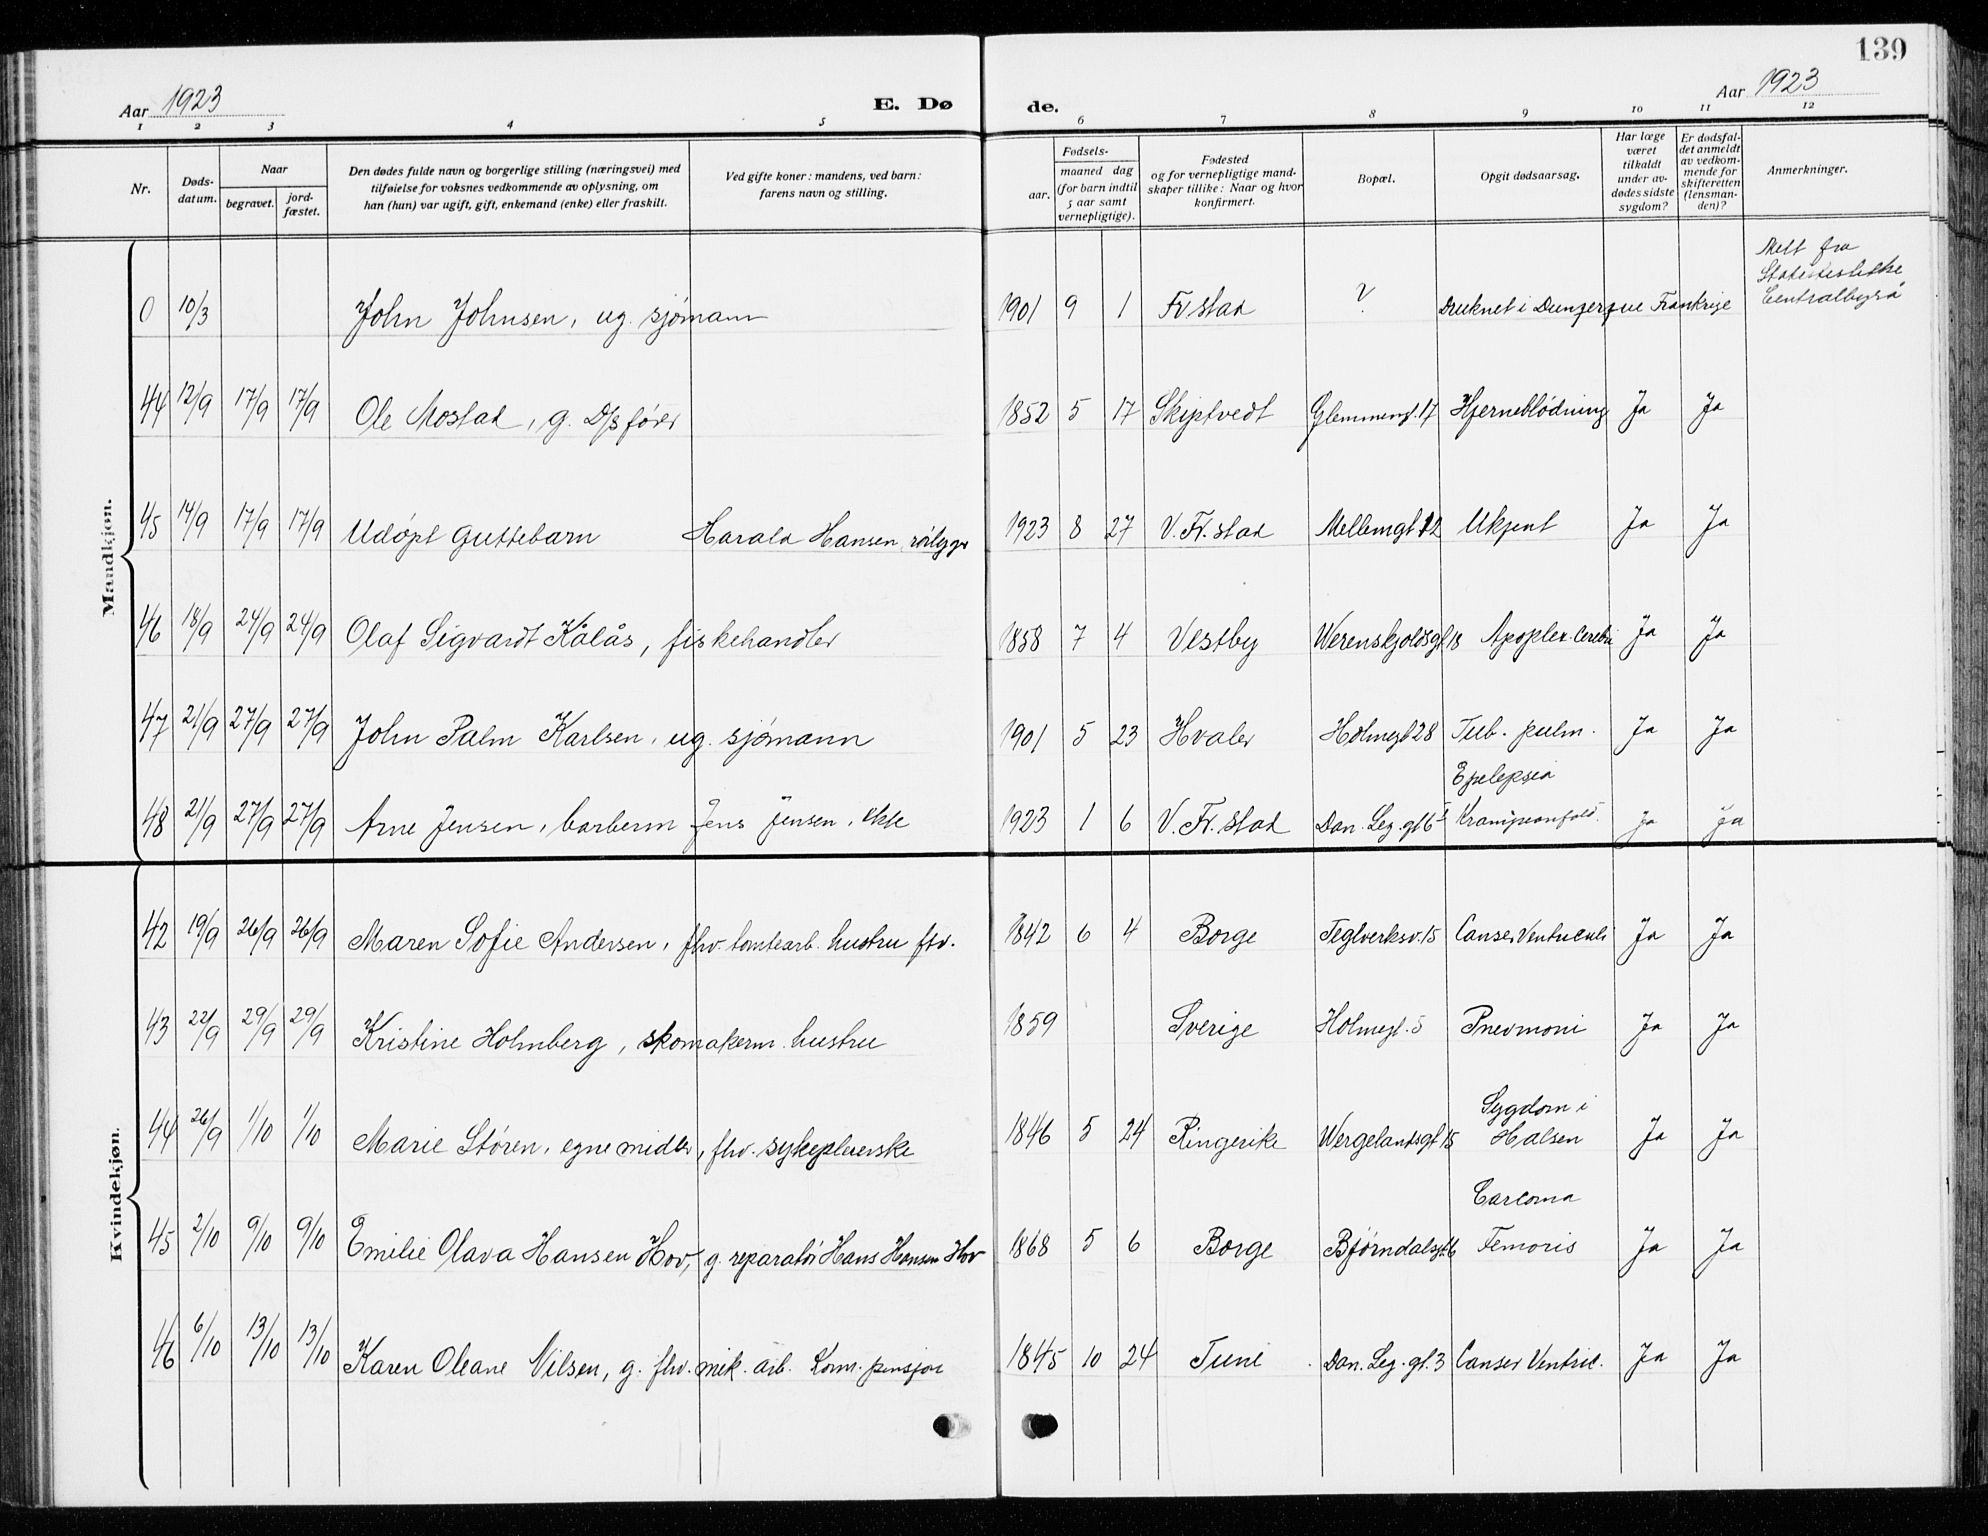 139
Aar 1923 E. Dø de. Aar 1923
1 2 3 4 5 6 7 8 9 10 11 12
Nr.
Døds-
datum.
Naar
begravet.
jord-
fæstet.
Den dødes fulde navn og borgerlige stilling (næringsvei) med
tilføielse for voksnes vedkommende av oplysning, om
han (hun) var ugift, gift, enkemand (enke) eller fraskilt.
Ved gifte koner: mandens, ved barn:
farens navn og stilling.
Fødsels-
aar.
maaned dag
(for barn indtil
5 aar samt
vernepligtige).
Fødested
og for vernepligtige mand-
skaper tillike: Naar og hvor
konfirmert.
Bopæl.
Opgit dødsaarsag.
Har læge
været
tilkaldt
under av-
dødes sidste
sygdom?
Er dødsfal-
det anmeldt
av vedkom-
mende for
skifteretten
(lensman-
den)?
Anmerkninger.
Mandkjøn.
Melt fra
Statistiske
Centralbyrå
0 10/3 John Johnsen, ug. sjømann 1901 9 1 Fr stad ? Druknet i Frankrige
44 12/9 17/9 17/9 Ole Mostad, g. D/s fører 1852 5 17 Skiptvedt Glemmengt. 17 Hjerneblödning Ja Ja
45 14/9 17/9 17/9 Udøpt guttebarn Harald Hansen, rørlegger 1923 8 27 V. Fr. stad Mellemgt 12 Ukjent Ja Ja
46 18/9 24/9 24/9 Olaf Sigvardt Kålås, fiskehandler 1858 7 4 Vestby Werenskjoldsgt 18 Apoplex. Cerebri Ja Ja
47 21/9 27/9 27/9 John Palm Karlsen, ug. sjømann 1901 5 23 Hvaler Holmegt 28 Tub. pulm. Ja Ja
Epelepsia
48 21/9 27/9 27/9 Arne Jensen, barberm Jens Jensen, ekte 1923 1 6 V. Fr. stad Dan. Leg. gt 6 Krampeanfald. Ja Ja
Kvindekjøn.
42 19/9 26/9 26/9 Maren Sofie Andersen, fhv. tomtearb. hustru ftv. 1842 6 4 Borge Teglverksv. 15 Canser Ventriculi Ja Ja
43 22/9 29/9 29/9 Kristine Holmberg, skomakerm. hustru 1859 Sverige Holmegt. 5 Pnevmoni Ja Ja
Sygdom i
44 26/9 1/10 1/10 Marie Støren, egne midler, fhv. sykepleierske 1846 5 24 Ringerike Wergelandsgt 15 Halsen Ja Ja
45 2/10 9/10 9/10 Emilie Olava Hansen Hov, g. reparatør Hans Hansen Hov 1868 5 6 Borge Bjørndalsgt 6 Femoris Ja Ja
46 6/10 13/10 13/10 Karen Oleane Nilsen, g. fhv. mek. arb. Kom. pensjon 1845 10 24 Tune Dan. Leg. gt. 3 Canser Ventric. Ja Ja